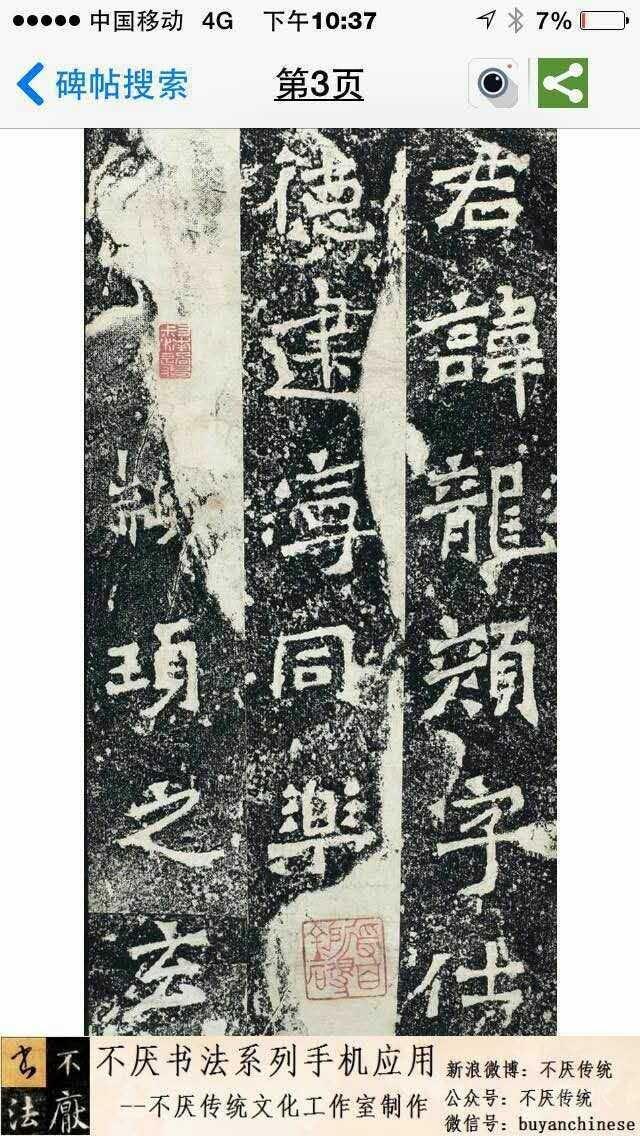 中国移动 4G 下午10:37 7%
碑帖搜索 第3页
君諱龍顏字仕
德建寧同樂
頊之玄
不厌书法
不厌书法系列手机应用
--不厌传统文化工作室制作
新浪微博：不厌传统
公众号：不厌传统
微信号：buyanchinese